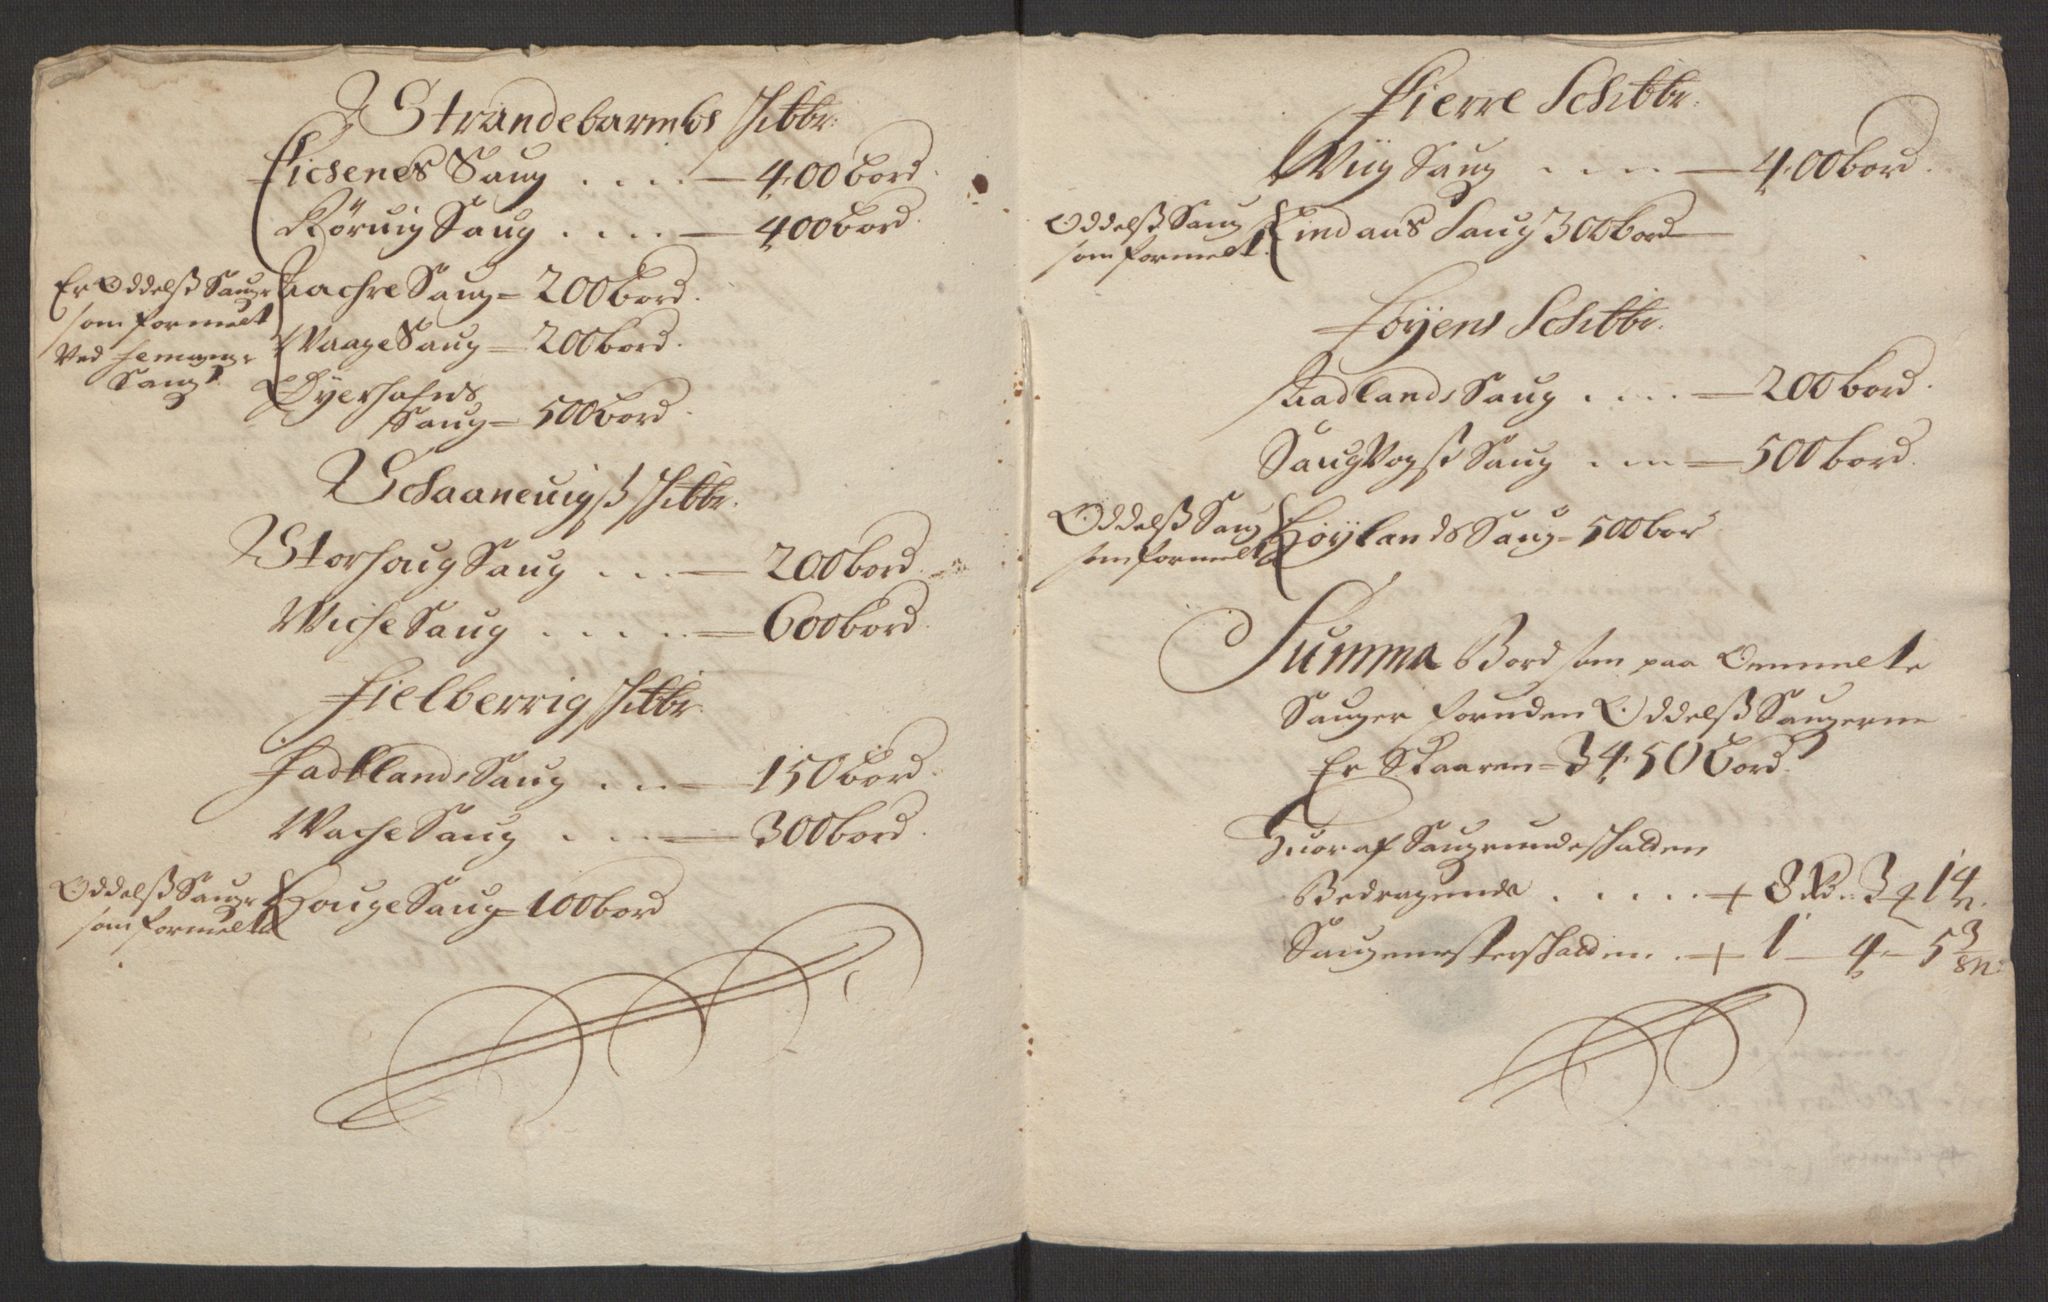 Strandebarmbs schibbr:
Eichenes Saug . . . . — 400 bord.
Röruig Saug . . . . — 400 bord.
Er Oddelsß Sauger
som formelt
Aachre Saug = 200 bord.
Waage Saug = 200 bord.
Øyerhafns
Saug = 500 bord.
Schaaneuigsß schibbr.
Storhoug Saug . . . — 200 bord.
Wiche Saug . . . . . = 600 bord.
Fielberrig schibbr.
Fadtlands Saug . . . — 150 bord.
Wache Saug . . . — 300 bord.
Oddelsß Sauger
som formelt
Houge Saug = 100 bord
Fierre Schibbr.
Wiig Saug . . . . — 400 bord.
Oddelsß Saug
som formelt.
Eindaas Saug 300 bord —
Föyens Schibbr.
Aadlands Saug . . . . — 200 bord.
Saug Vogsß Saug . . . — 500 bord.
Oddelsß Saug
som formelt
Höylands Saug = 500 bor
Summa Bord som paa Ommelte
Sauger foruden Oddelsß Saugerne
Er Skaaren = 3450 bord.
Huoraf Saugrundeschatden
Bedragende . . . . . + 8 Rd. 3 ꝗ 14 ß.
Saugmesterschatden . . + 1 — 4 — 5 3/8 ß.